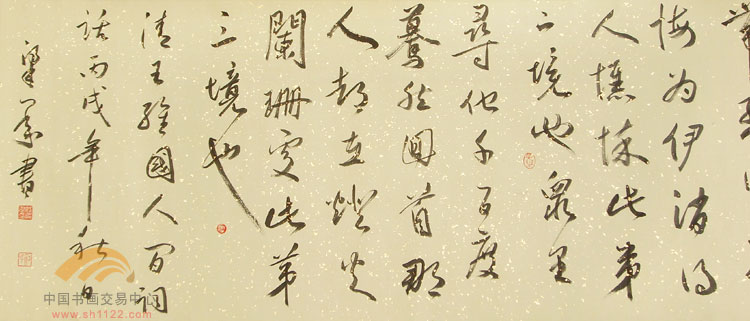 悔为伊消得
人憔悴此第
二境也眾里
尋他千百度
驀然回首那
人却在燈火
闌珊處此第
三境也
清王維國人间詞
話丙戌年秋日
書
中国书画交易中心
www.sh1122.com